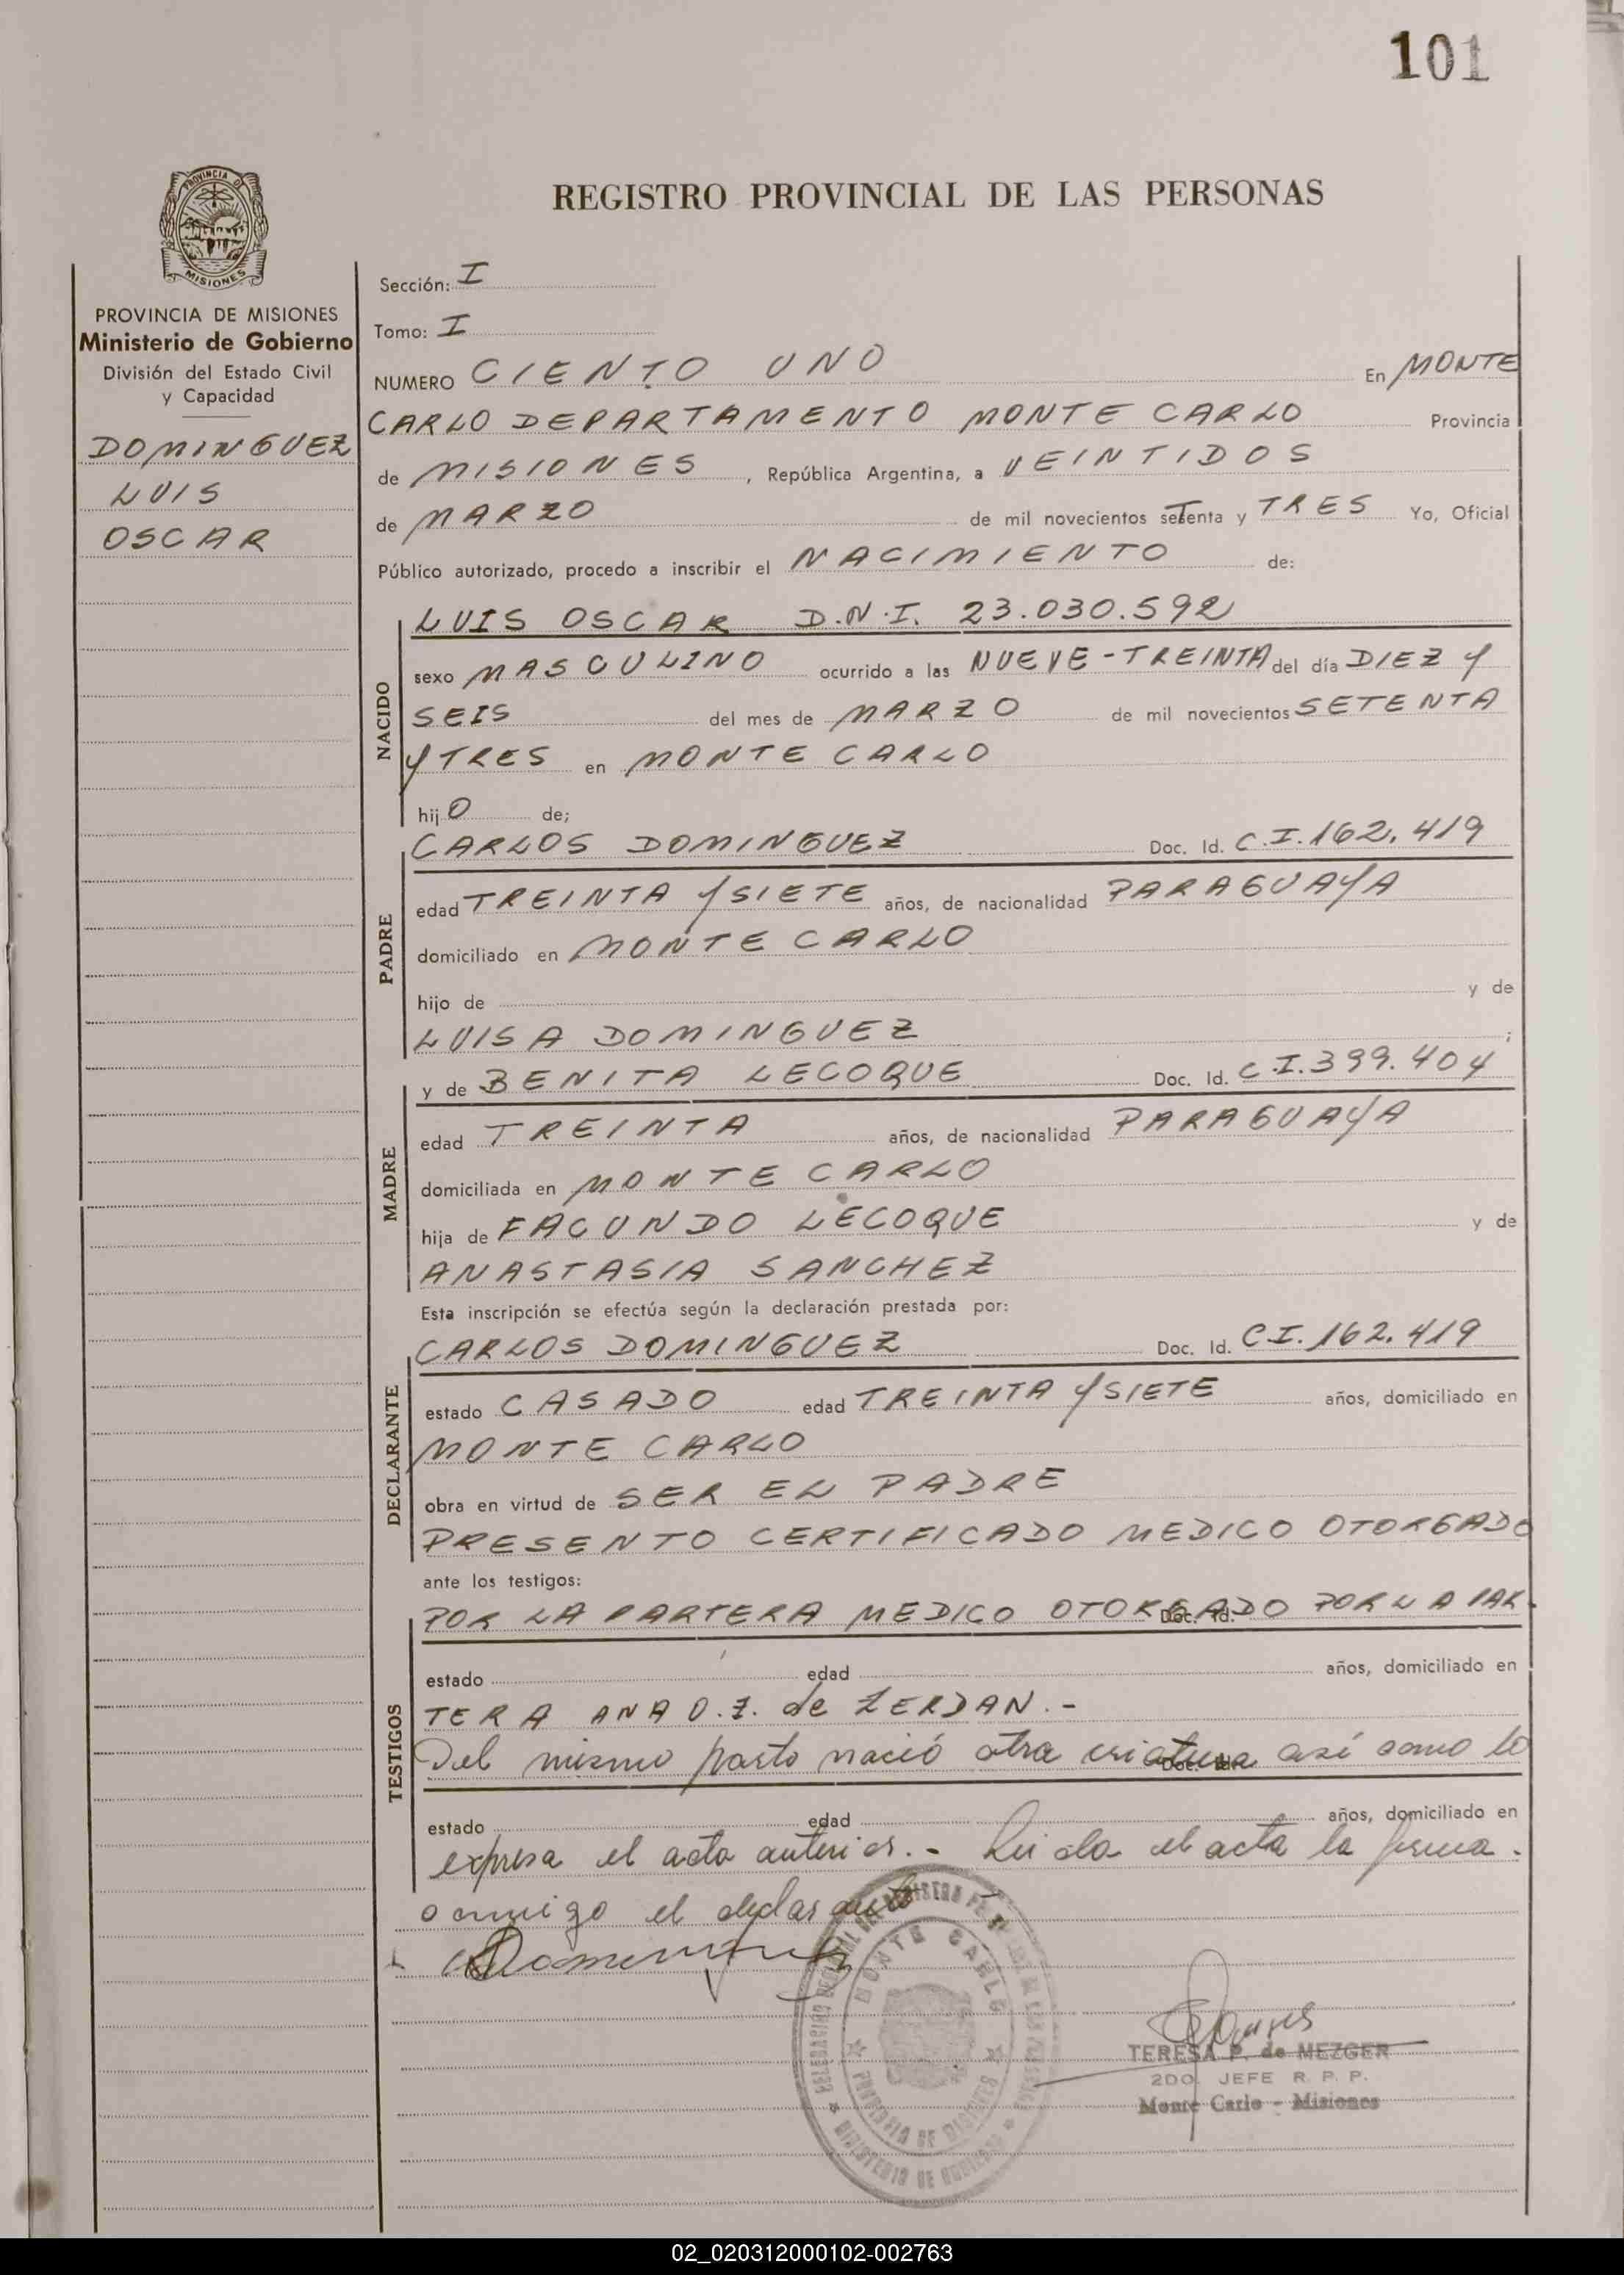 101
REGISTRO PROVINCIAL DE LAS PERSONAS
PROVINCIA DE
MISIONES
PROVINCIA DE MISIONES
Ministerio de Gobierno
División del Estado Civil
y Capacidad
DOMINGUEZ
LUIS
OSCAR
Sección: I
Tomo: I
NUMERO CIENTO UNO En MONTE
CARLO DEPARTAMENTO MONTE CARLO Provincia
de MISIONES, República Argentina, a VEINTIDOS
de MARZO de mil novecientos setenta y TRES Yo, Oficial
Público autorizado, procedo a inscribir el NACIMIENTO de:
NACIDO
LUIS OSCAR D.N.I. 23.030.592
sexo MASCULINO ocurrido a las NUEVE-TREINTA del día DIEZ Y
SEIS del mes de MARZO de mil novecientos SETENTA
Y TRES en MONTE CARLO
hijO de;
PADRE
CARLOS DOMINGUEZ Doc. Id. C.I.162.419
edad TREINTA Y SIETE años, de nacionalidad PARAGUAYA
domiciliado en MONTE CARLO
hijo de y de
LUISA DOMINGUEZ ;
MADRE
y de BENITA LECOQUE Doc. Id. C.I.399.404
edad TREINTA años, de nacionalidad PARAGUAYA
domiciliada en MONTE CARLO
hija de FACUNDO LECOQUE y de
ANASTASIA SANCHEZ
Esta inscripción se efectúa según la declaración prestada por:
DECLARANTE
CARLOS DOMINGUEZ Doc. Id. C.I.162.419
estado CASADO edad TREINTA Y SIETE años, domiciliado en
MONTE CARLO
obra en virtud de SER EL PADRE
PRESENTO CERTIFICADO MEDICO OTORGADO
ante los testigos:
TESTIGOS
POR LA PARTERA MEDICO OTORGADO POR LA PAR- Doc. Id.
estado edad años, domiciliado en
TERA ANA O.Z. de ZERDAN.-
Del mismo parto nació otra criatura así como lo Doc. Id.
estado edad años, domiciliado en
expresa el acta anterior.- Leida el acta la firma
conmigo el declarante
MONTE CARLO
PROVINCIA DE MISIONES
MINISTERIO DE GOBIERNO
TERESA P. de MEZGER
2DO. JEFE R. P. P.
Monte Carlo - Misiones
02_020312000102-002763